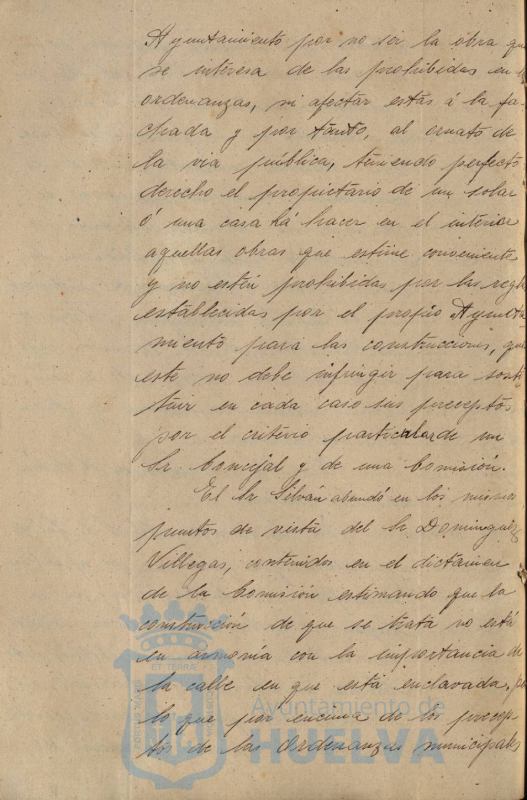 Ayuntamiento por no ser la obra que
se interesa de las prohibidas en
ordenanzas, ni afectar estas á la fa
chada y por tanto, al ornato de
la via pública, teniendo perfecto
derecho el propietario de un solar
ó una casa há hacer en el interior
aquellas obras que estime conveniente
y no estén prohibidas por las regla
establecidas por el propio Ayunta
miento para las construcciones, que
este no debe infringir para susti
tuir en cada caso sus preceptos
por el criterio particular de un
Sr. Concejal y de una Comisión.
El Sr Silván abundó en los mismos
puntos de vista del Sr Dominguez
Villegas, contenidos en el dictamen
de la Comisión estimando que la
construcción de que se trata no está
en armonía con la importancia de
la calle en que está enclavada, por
lo que por encima de los precep
tos de las Ordenanzas municipales
Ayuntamiento de
HUELVA